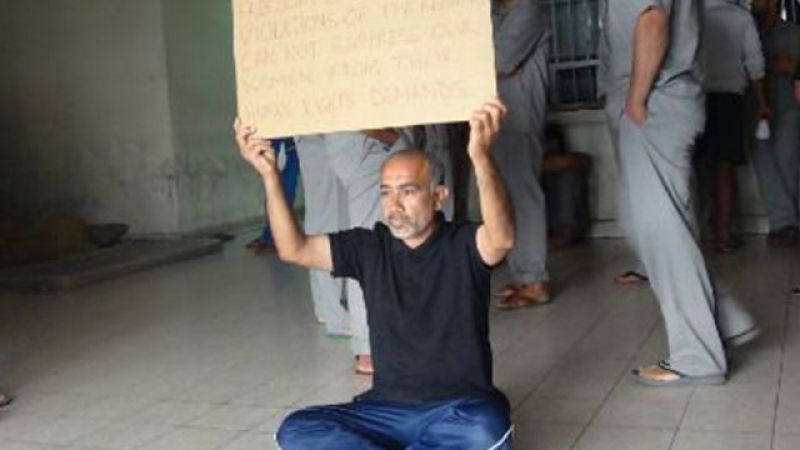 VIOLATIONS OF THE REGIME
CAN NOT SUPPRESS OUR
WOMEN FROM THEIR
HUMAN RIGHTS DEMANDS